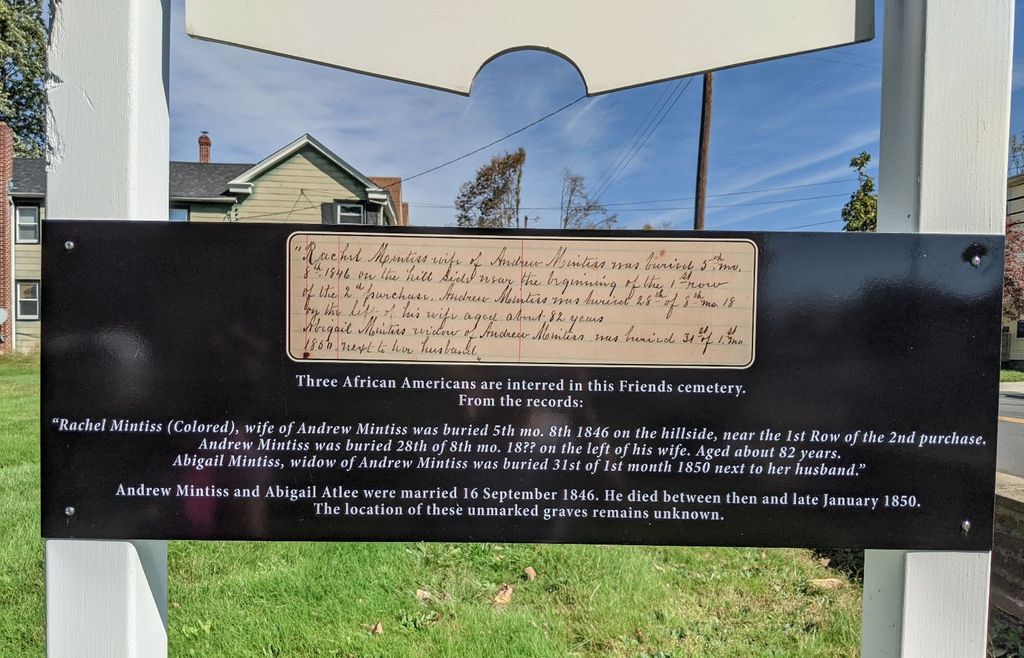 "Rachel Mintiss wife of Andrew Mintiss was buried 5th mo.
8th 1846 on the hill side near the beginning of the 1st row
of the 2d purchase. Andrew Mintiss was buried 28th of 8th mo. 18
on the left of his wife aged about 82 years
Abigail Mintiss widow of Andrew Mintiss was buried 31st of 1st mo
1850 next to her husband"
Three African Americans are interred in this Friends cemetery.
From the records:
“Rachel Mintiss (Colored), wife of Andrew Mintiss was buried 5th mo. 8th 1846 on the hillside, near the 1st Row of the 2nd purchase.
Andrew Mintiss was buried 28th of 8th mo. 18?? on the left of his wife. Aged about 82 years.
Abigail Mintiss, widow of Andrew Mintiss was buried 31st of 1st month 1850 next to her husband.”
Andrew Mintiss and Abigail Atlee were married 16 September 1846. He died between then and late January 1850.
The location of these unmarked graves remains unknown.